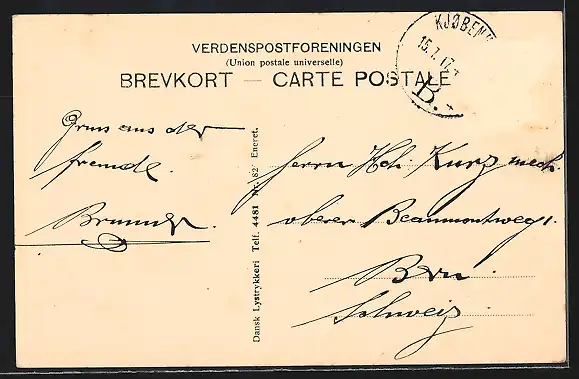 VERDENSPOSTFORENINGEN
(Union postale universelle)
BREVKORT — CARTE POSTALE
KJØBENH
15.7.17.
B.
Gruss aus der
fremde.
Brunner.
Dansk Lystrykkeri Telf. 4481 Nr. 82 Eneret.
Herrn Hch. Kurz mech.
oberer Beaumontweg 1.
Bern.
Schweiz